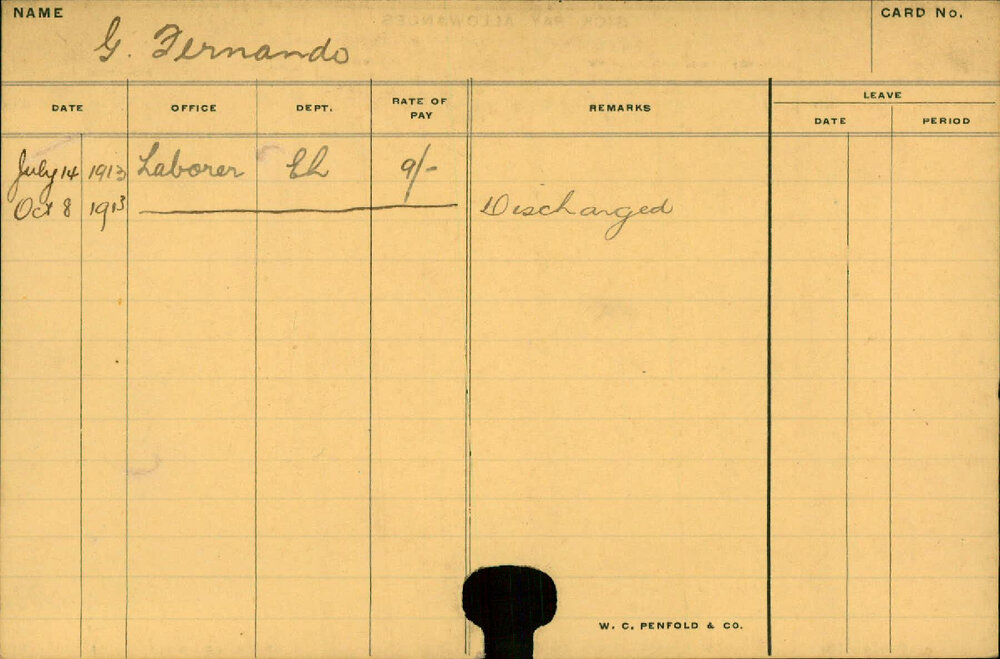 NAME G. Fernando CARD No.
DATE OFFICE DEPT. RATE OF PAY REMARKS LEAVE DATE PERIOD
July 14 1913 Laborer EL 9/-
Oct 8 1913 Discharged
W. C. PENFOLD & CO.